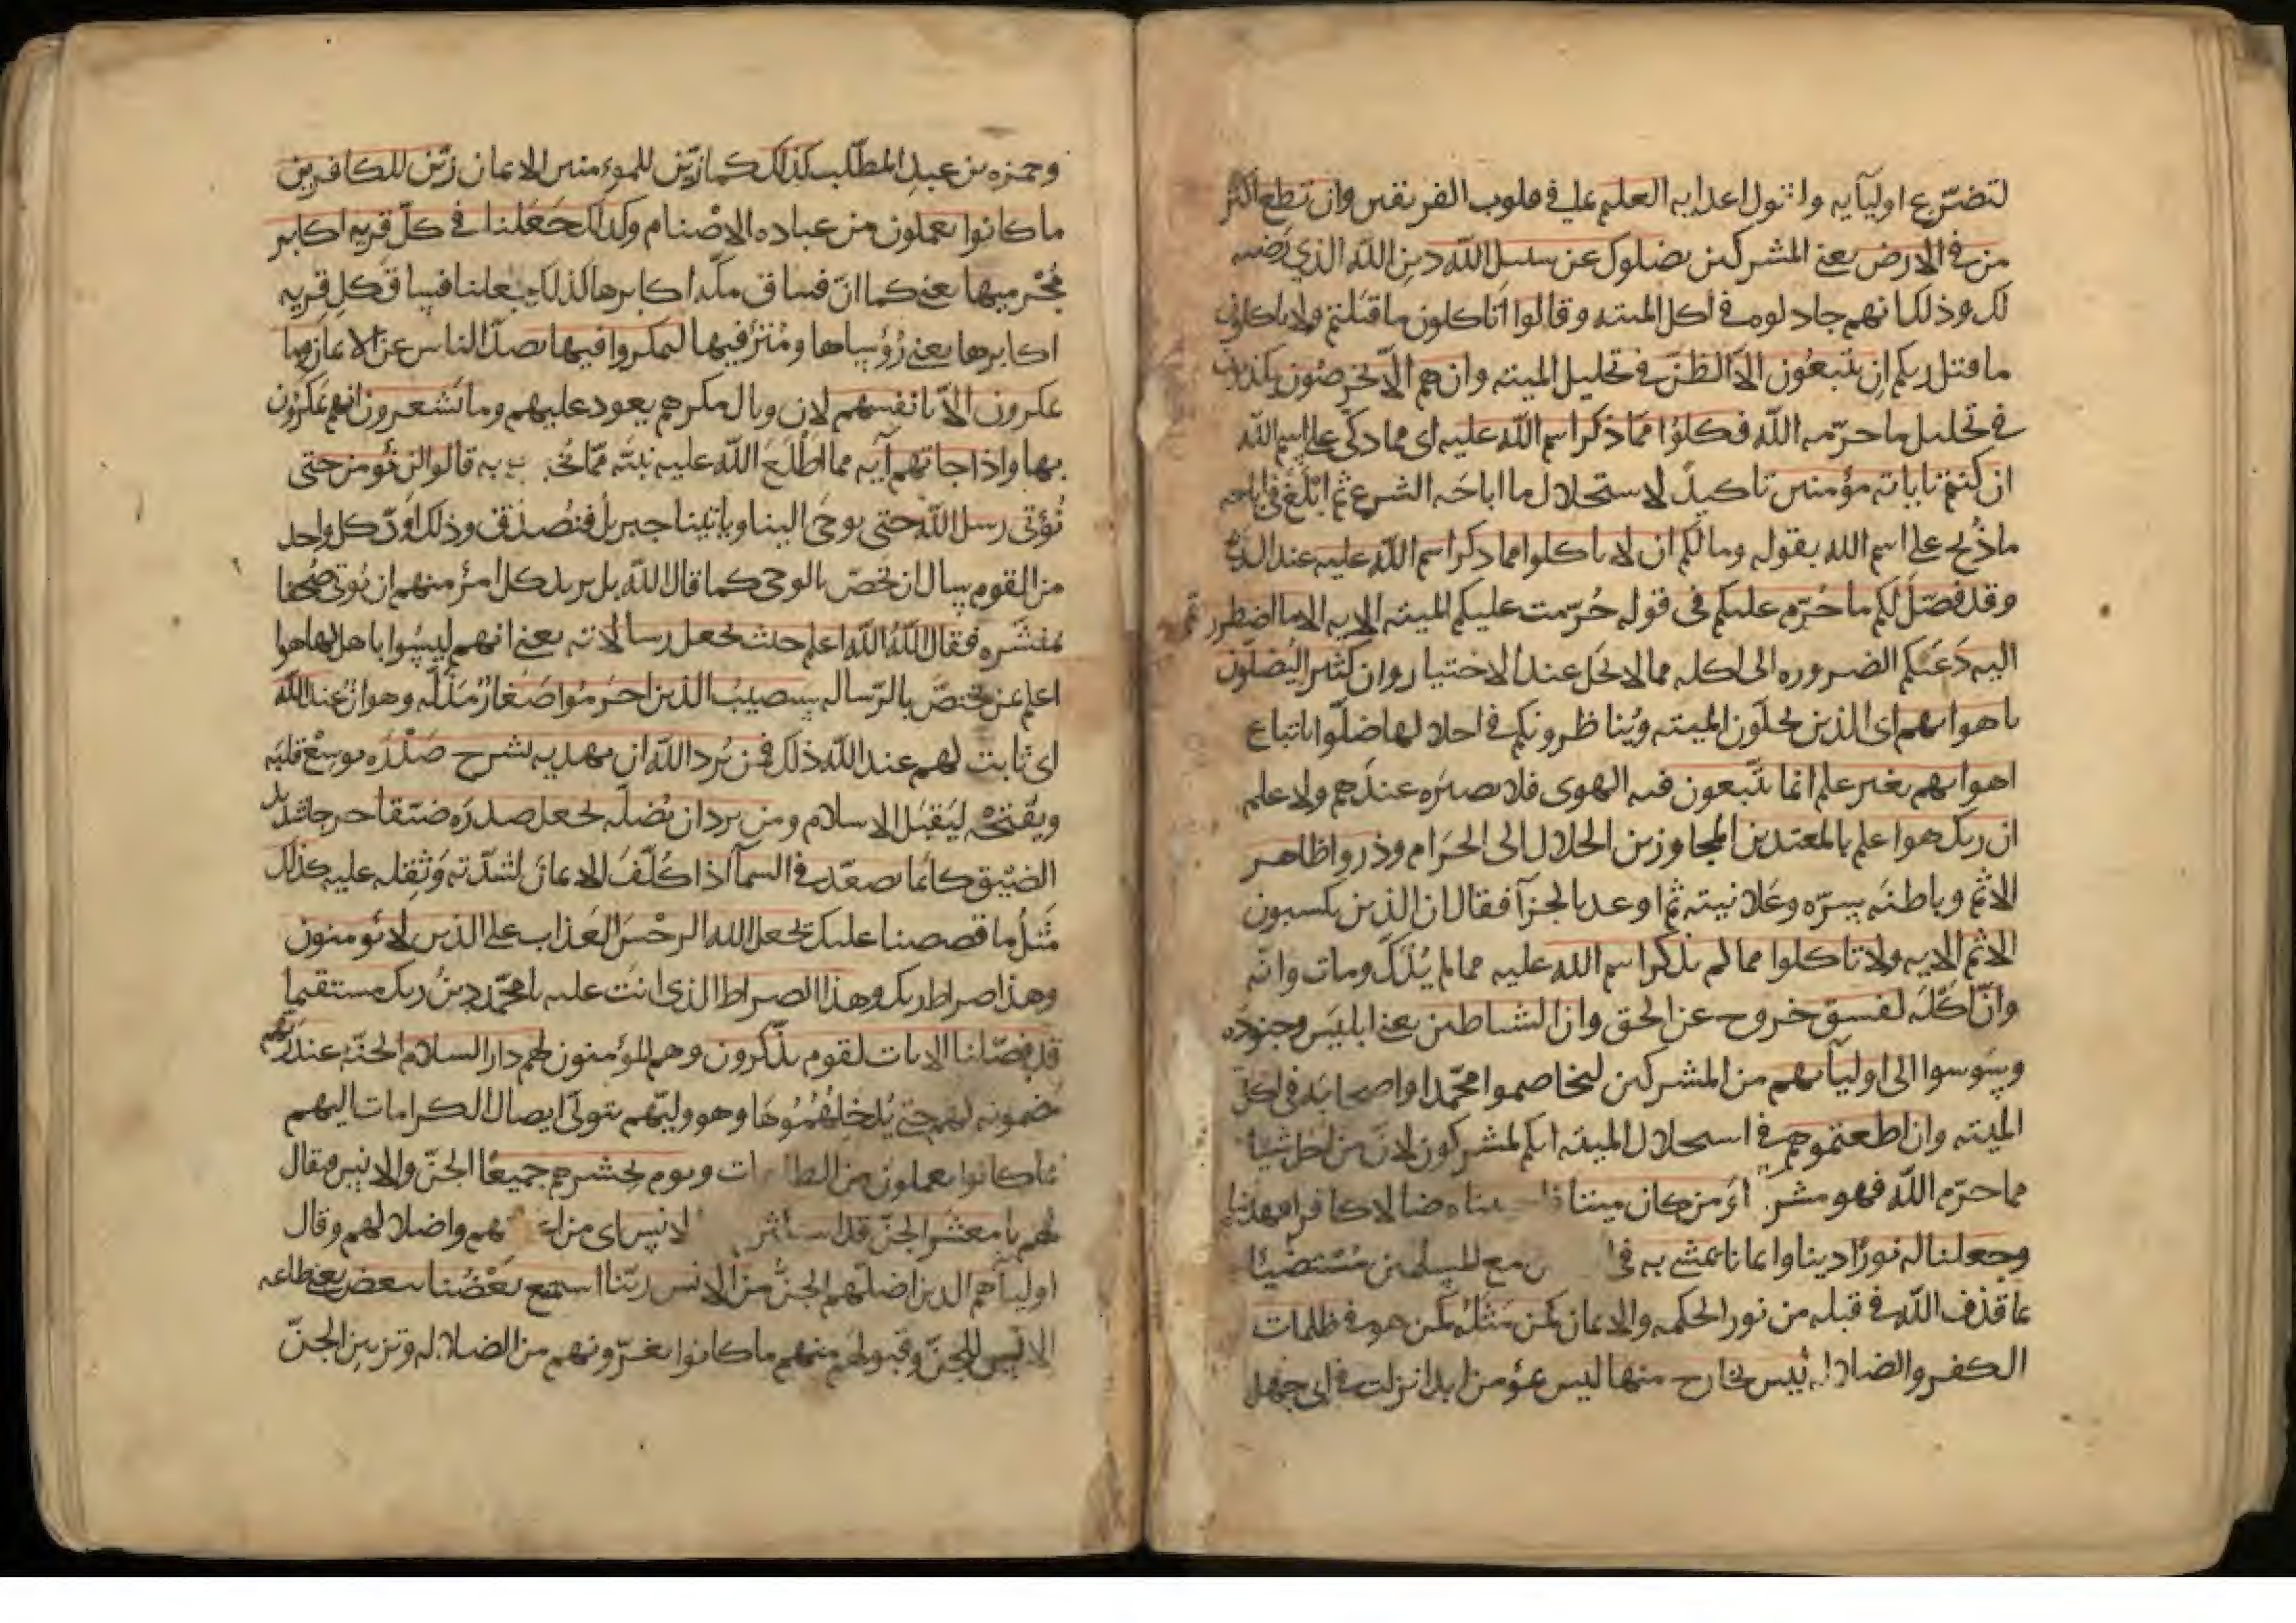 لتضرع اوليآيه واتول اعدايه العليم بما في قلوب الفريقين وان تطع اكثر
من في الارض يعني المشركين يضلوك عن سبيل الله دين الله الذي رضيه
لك وذلك انهم جادلوه في اكل الميته وقالوا اتاكلون ما قتلتم ولا تاكلون
ما قتل ربكم ان يتبعون الا الظن في تحليل الميته وان هم الا يخرصون يكذبون
في تحليل ما حرمه الله فكلوا مما ذكر اسم الله عليه اى مما ذكى على اسم الله
ان كنتم باياته مؤمنين تاكيد لاستحلال ما اباحه الشرع ثم ابلغ في اباحه
ما ذبح على اسم الله بقوله وما لكم ان لا تاكلوا مما ذكر اسم الله عليه عند الذبح
وقد فصل لكم ما حرم عليكم في قوله حرمت عليكم الميته الايه الا ما اضطررتم
اليه دعتكم الضروره الى اكله مما لا يحل عند الاختيار وان كثيرا ليضلون
باهوايهم اى الذين يحلون الميته ويناظرونكم في احلالها ضلوا باتباع
اهوايهم بغير علم انما يتبعون فيه الهوى فلا بصيره عندهم ولا علم
ان ربك هو اعلم بالمعتدين المجاوزين الحلال الى الحرام وذروا ظاهر
الاثم وباطنه سره وعلانيته ثم اوعد بالجزآ فقال ان الذين يكسبون
الاثم الايه ولا تاكلوا مما لم يذكر اسم الله عليه مما لم يذك ومات وانه
وان اكله لفسق خروج عن الحق وان الشياطين يعني ابليس وجنوده
وسوسوا الى اوليآيهم من المشركين ليخاصموا محمدا واصحابه في اكل
الميته وان اطعتموهم في استحلال الميته انكم لمشركون لان من احل شيا
مما حرم الله فهو مشر اومن كان ميتا ضالا كافرا فهديناه
وجعلنا له نورا دينا وايمانا يمشي به في مع المسلمين مستضيئا
بما قذف الله في قلبه من نور الحكمه والايمان كمن مثله كمن هو في ظلمات
الكفر والضلاله ليس بخارج منها ليس بمؤمن ابدا نزلت في ابي جهل
وحمزه بن عبد المطلب كذلك كما زين للمومنين الايمان زين للكافرين
ما كانوا يعملون من عباده الاصنام وكذلك جعلنا في كل قريه اكابر
مجرميها يعني كما ان فساق مكه اكابرها كذلك جعلنا فساق كل قريه
اكابرها يعني رؤساها ومترفيها ليمكروا فيها بصد الناس عن الايمان وما
يمكرون الا بانفسهم لان وبال مكرهم يعود عليهم وما يشعرون انهم يمكرون
بها واذا جاتهم آيه مما اطلع الله عليه نبيه مما به قالوا لن نؤمن حتى
نؤتى رسل الله حتى يوحى الينا وياتينا جبريل فنصدق وذلك ان كل واحد
من القوم سال ان يخص بالوحى كما قال الله بل يريد كل امرئ منهم ان يوتى صحفا
منشره فقال الله الله اعلم حيث يجعل رسالاته يعني انهم ليسوا باهل لها هو
اعلم بمن يختص بالرساله سيصيب الذين اجرموا صغار مذله وهوان عند الله
اى ثابت لهم عند الله ذلك فمن يرد الله ان يهديه يشرح صدره يوسع قلبه
ويفتحه ليقبل الاسلام ومن يرد ان يضله يجعل صدره ضيقا حرجا شديد
الضيق كانما يصعد في السمآ اذا كلف الايمان لشدته وثقله عليه كذلك
مثل ما قصصنا عليك يجعل الله الرجس العذاب على الذين لا يؤمنون
وهذا صراط ربك وهذا الصراط الذي انت عليه يا محمد دين ربك مستقيما
قد فصلنا الايات لقوم يذكرون وهم المؤمنون لهم دار السلام الجنه عند ربهم
مضمونه لهم حتى يدخلهموها وهو وليهم يتولى ايصال الكرامات اليهم
بما كانوا يعملون من الطاعات ويوم يحشرهم جميعا الجن والانس فيقال
لهم يا معشر الجن قد استكثرتم الانس اى من واضلالهم وقال
اوليآهم الذين اضلهم الجن من الانس ربنا استمتع بعضنا ببعض يعني طاعه
الانس للجن وقبولهم منهم ما كانوا يغرونهم من الضلاله وتزيين الجن